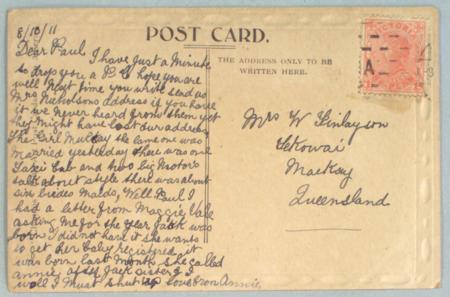 8/10/11
POST CARD.
THE ADDRESS ONLY TO BE
WRITTEN HERE.
VICTORIA
A
Dear Paul I have just a Minute
to drop you a P.C hope you are
well Next time you write send us
Mrs Nicholsons address if you have
it we never heard from them yet
they might have lost our address
The Girl Mulcay she came one was
married yesterday there was one
Taxi Cab and two big Motors
talk about style there was about
six brides Maids, Well Paul I
had a letter from Maggie Vale
asking me for the year Jack was
born I didnt have it she wants
to get her baby registered it
was born last month she called
annie, after Jack sister &
well I Must shut up love from Annie
Mrs W Finlayson
Mackay
Queensland